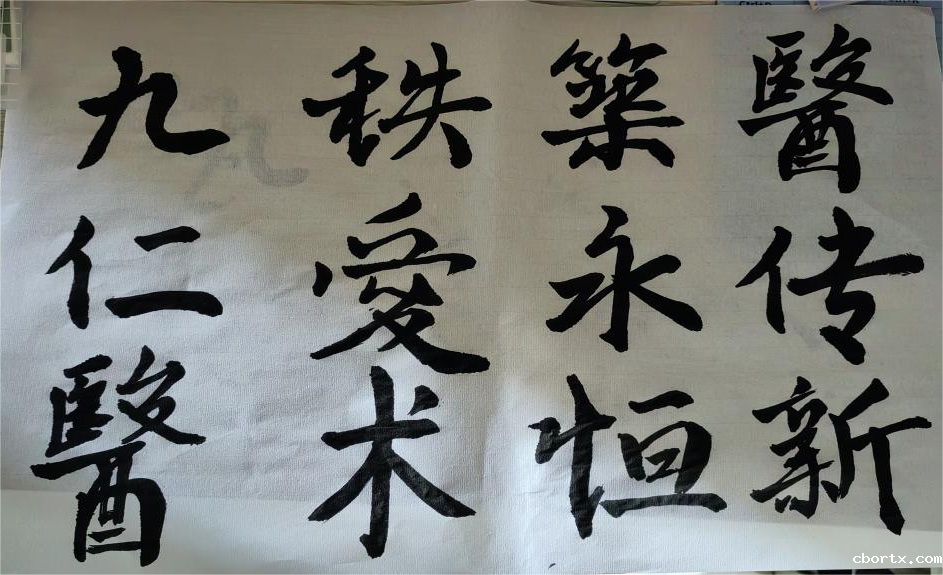 九秩築醫
仁愛永传
醫术恒新
cbortx.com